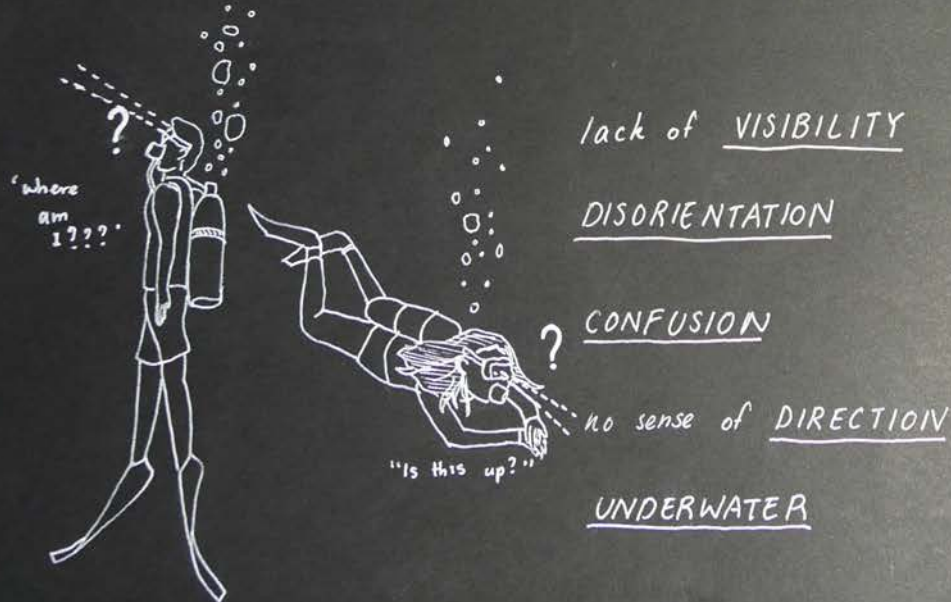 ?
'where
am
I???'
"Is this up?"
?
lack of VISIBILITY
DISORIENTATION
CONFUSION
no sense of DIRECTION
UNDERWATER